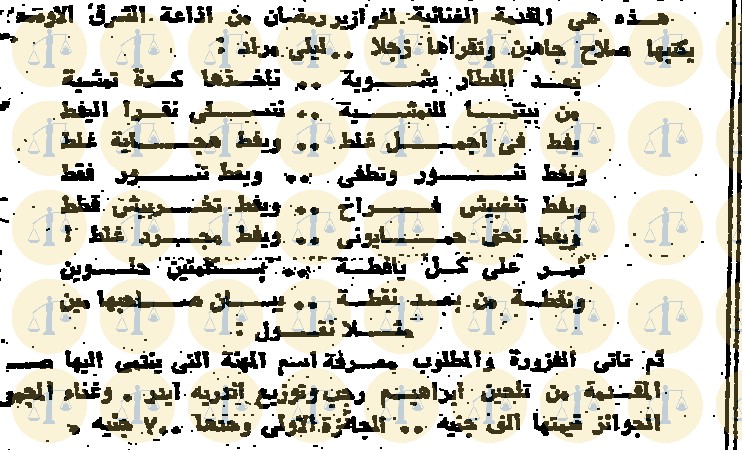 هـذه هى المقدمة الغنائية لفوازير رمضان من اذاعة الشرق الاوسط
يكتبها صلاح جاهين وتقرأها زجلا .. ليلى مراد :
بعـد الفطار بشـــوية .. ناخـدها كـدة تمشية
من بيتنـــا للتمشـــية .. نتســـلى نقـرا اليفط
يفط فى اجمـــل خط .. ويفط هجـــاية غلط
ويفط تنـــور وتطفى .. ويفط تنـــور فقط
ويفط تنفيش فـــراخ .. ويفط تخـــربيش قطط
ويفط تحت .. ويفط مجـــرد غلط !
نمـر على كـل يافطـة .. بـــكلمتين حلـــوين
ونقطـة من بعـد نقطـة .. بيـــان صـــاحبها مين
مثـــلا نقـــول :
ثم تاتى الفزورة والمطلوب معـرفة اسم المهنة التى ينتمى اليها
المقـدمة من تلحين ابراهيـم رجب وتوزيع اندريه ايدر . وغناء
الجوائز قيمتها الف جنيه .. الجائزة الاولى وحدها ٧٠٠ جنيه .